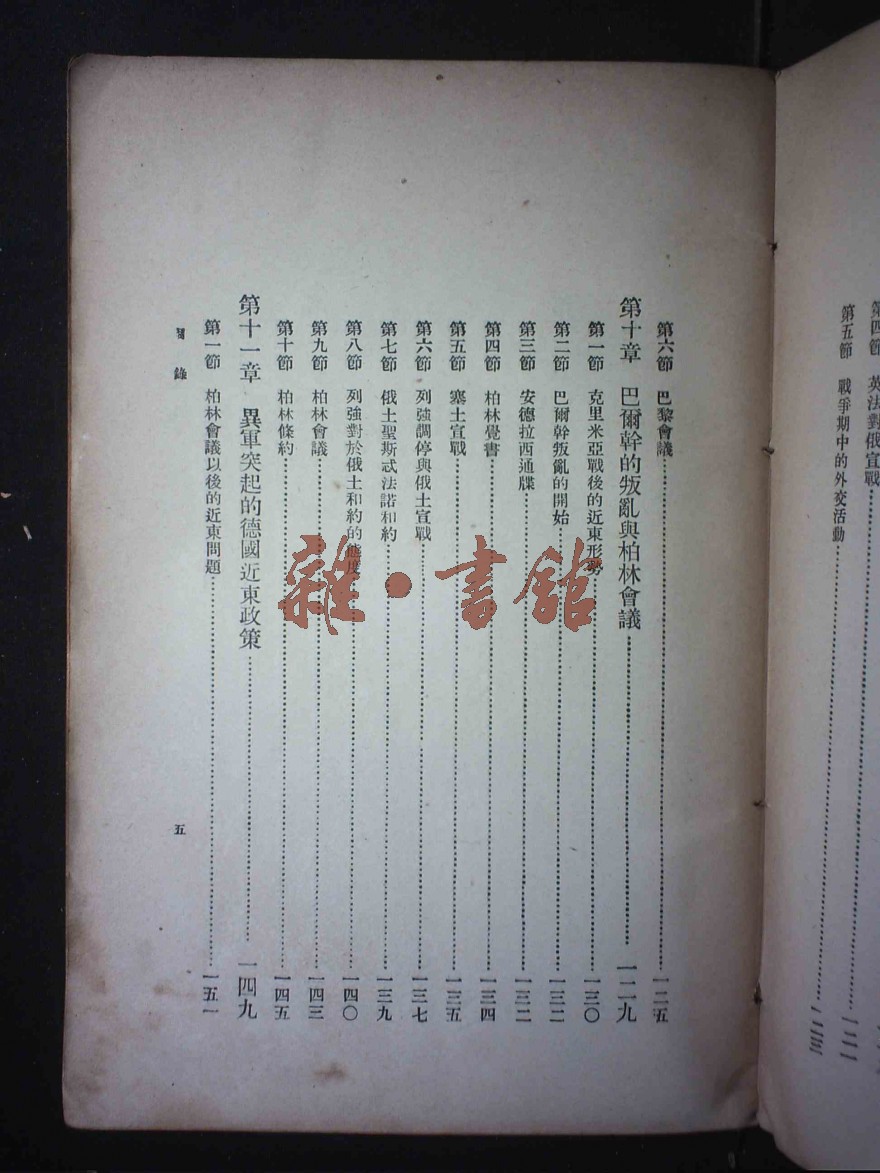 第五節 戰爭期中的外交活動
第六節 巴黎會議……一二五
第十章 巴爾幹的叛亂與柏林會議……一二九
第一節 克里米亞戰後的近東形勢……一三〇
第二節 巴爾幹叛亂的開始……一三二
第三節 安德拉西通牒……一三二
第四節 柏林覺書……一三四
第五節 塞土宣戰……一三五
第六節 列強調停與俄土宣戰……一三七
第七節 俄土聖斯忒法諾和約……一三九
第八節 列強對於俄土和約的態度……一四〇
第九節 柏林會議……一四三
第十節 柏林條約……一四五
第十一章 異軍突起的德國近東政策……一四九
第一節 柏林會議以後的近東問題……一五一
目錄
五
雜·書館